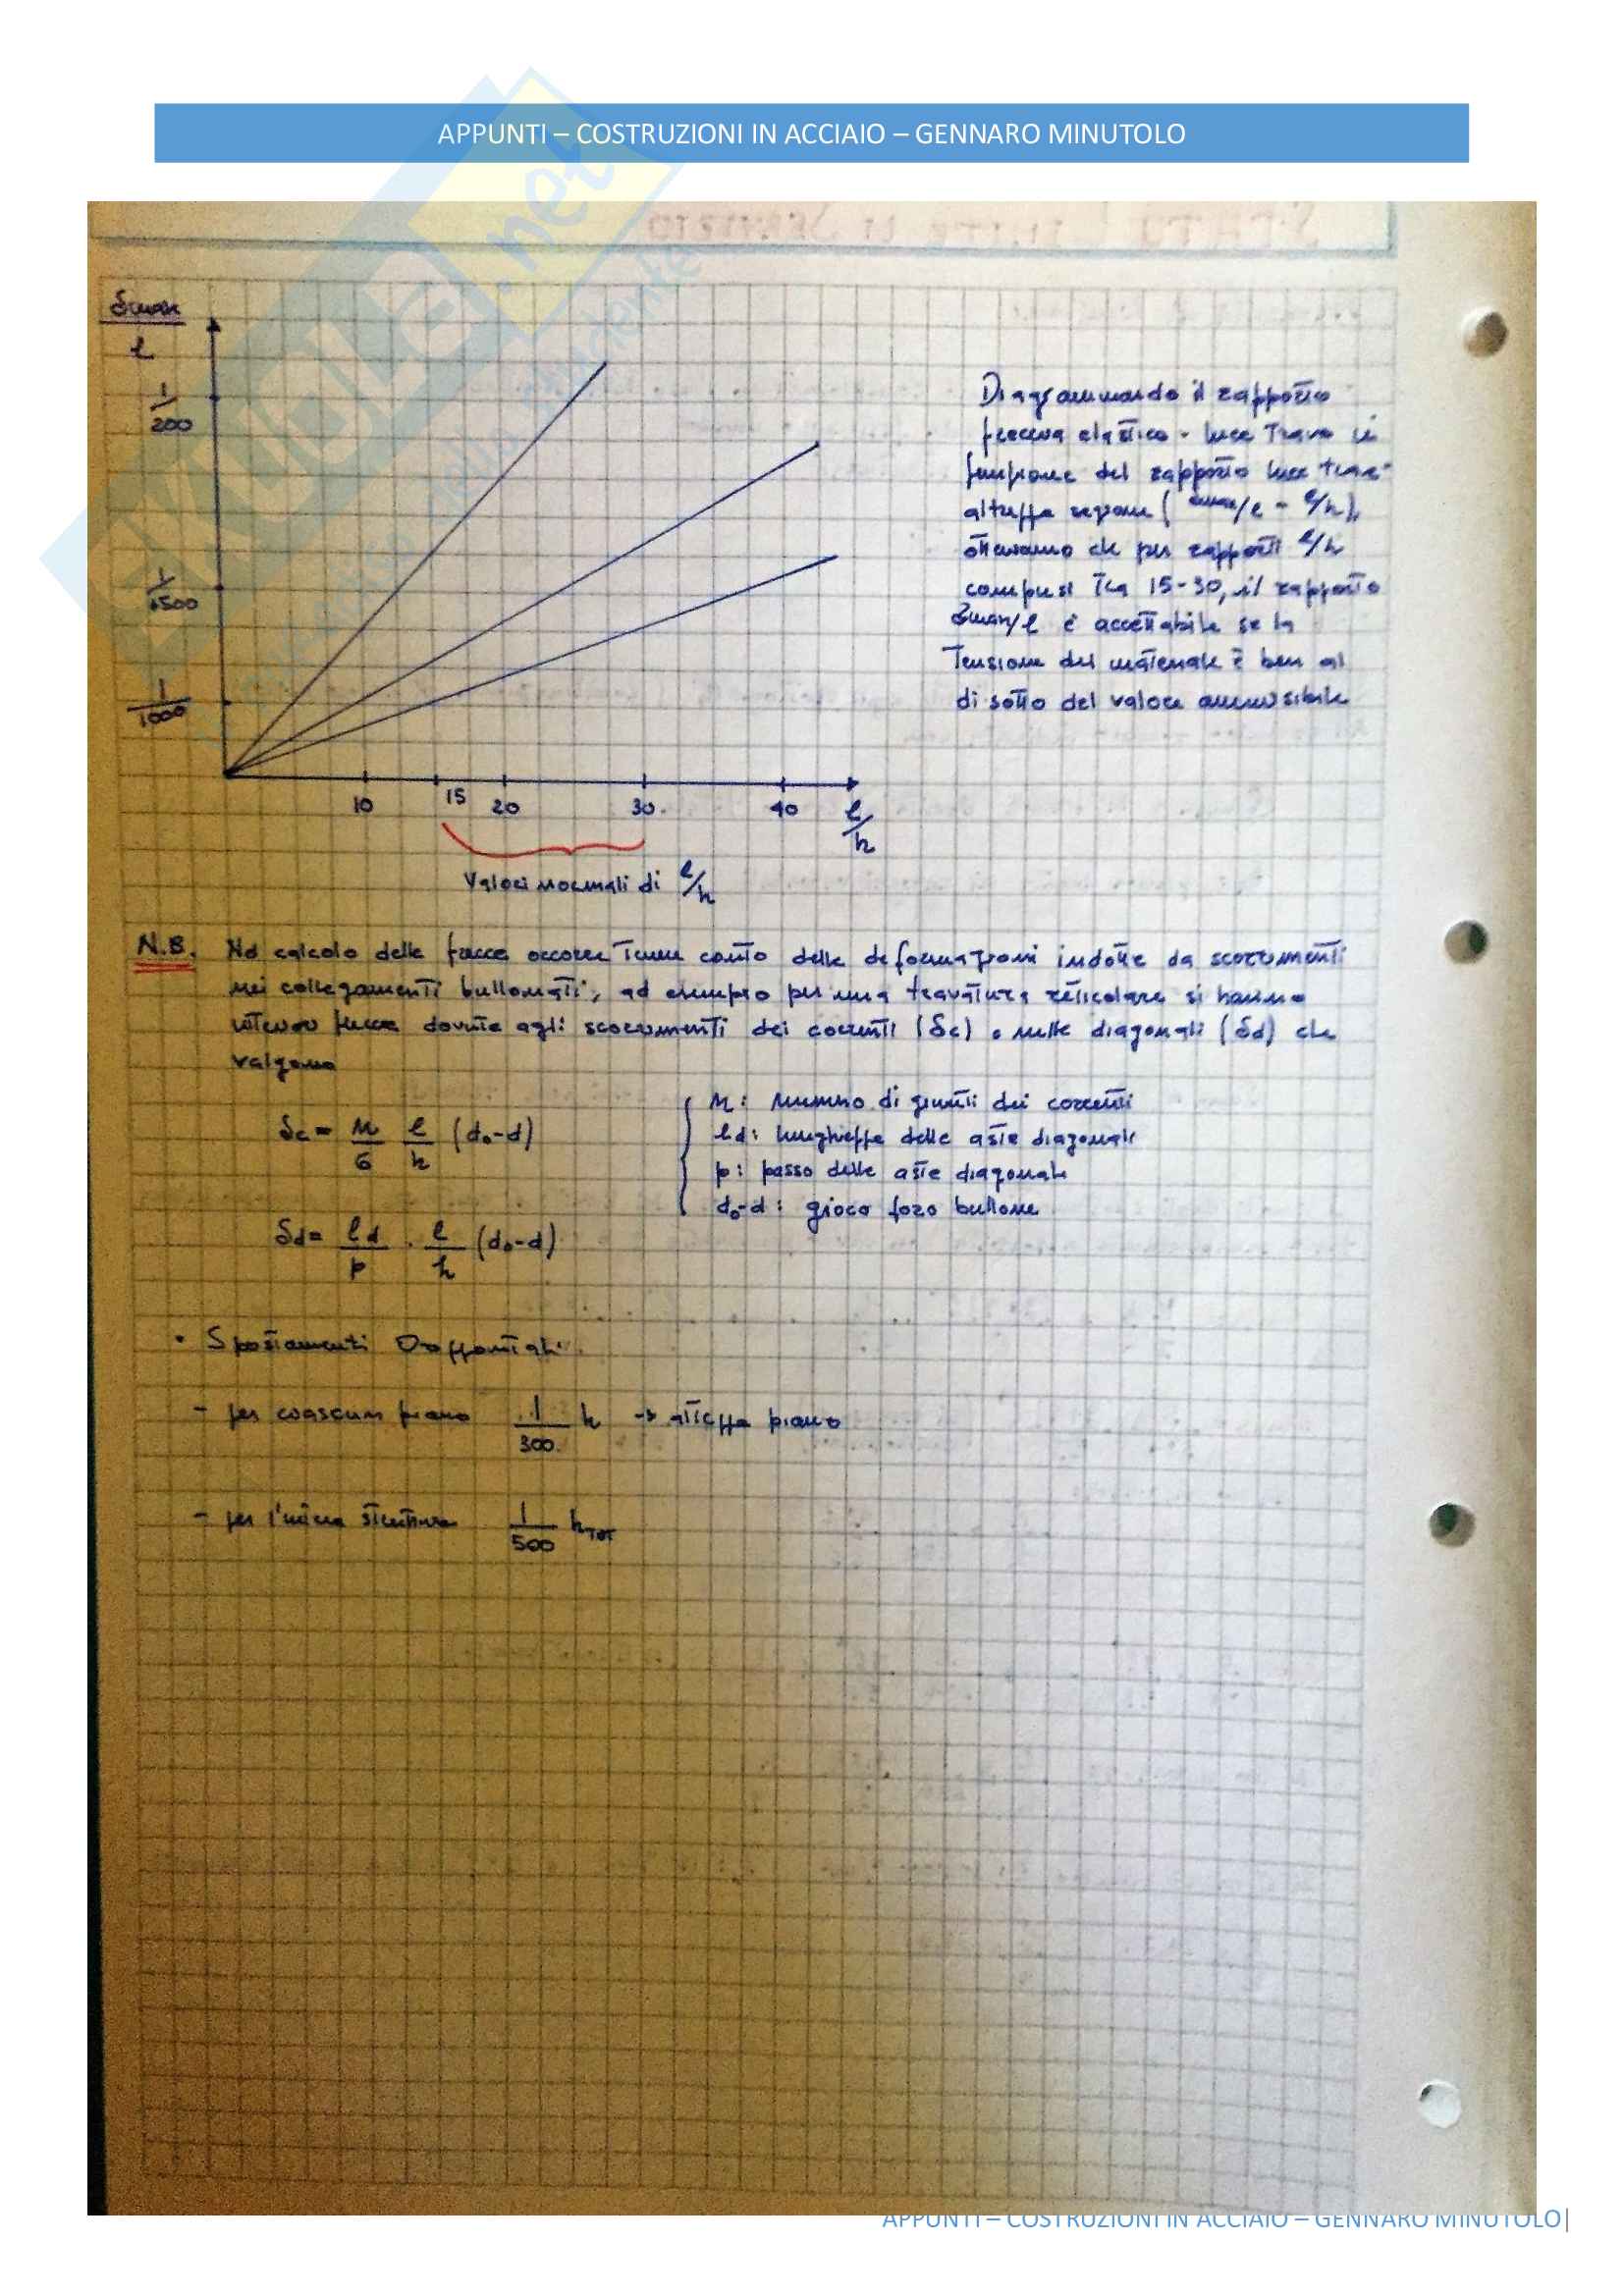 APPUNTI – COSTRUZIONI IN ACCIAIO – GENNARO MINUTOLO
δmax
l
1
200
1
500
1
1000
10 15 20 30 40 l/h
Valori normali di l/h
Diagrammando il rapporto
freccia elastica - luce Trave in
funzione del rapporto luce trave-
altezza sezione ( δmax/l - l/h ),
otteniamo che per rapporti l/h
compresi Tra 15-30, il rapporto
δmax/l è accettabile se la
Tensione del materiale è ben al
di sotto del valore ammissibile
N.B. Nel calcolo delle frecce occorre Tener conto delle deformazioni indotte da scorrimenti
nei collegamenti bullonati, ad esempio per una travatura reticolare si hanno
ulteriori frecce dovute agli scorrimenti dei correnti (δc) e nelle diagonali (δd) che
valgono
δc = n/6 l/h (d₀-d)
n: numero di giunti dei correnti
ld: lunghezze delle aste diagonali
p: passo delle aste diagonali
d₀-d: gioco foro bullone
δd = ld/p · l/h (d₀-d)
• Spostamenti Orizzontali
- per ciascun piano 1/300 h → altezza piano
- per l'intera struttura 1/500 hTOT
APPUNTI – COSTRUZIONI IN ACCIAIO – GENNARO MINUTOLO|